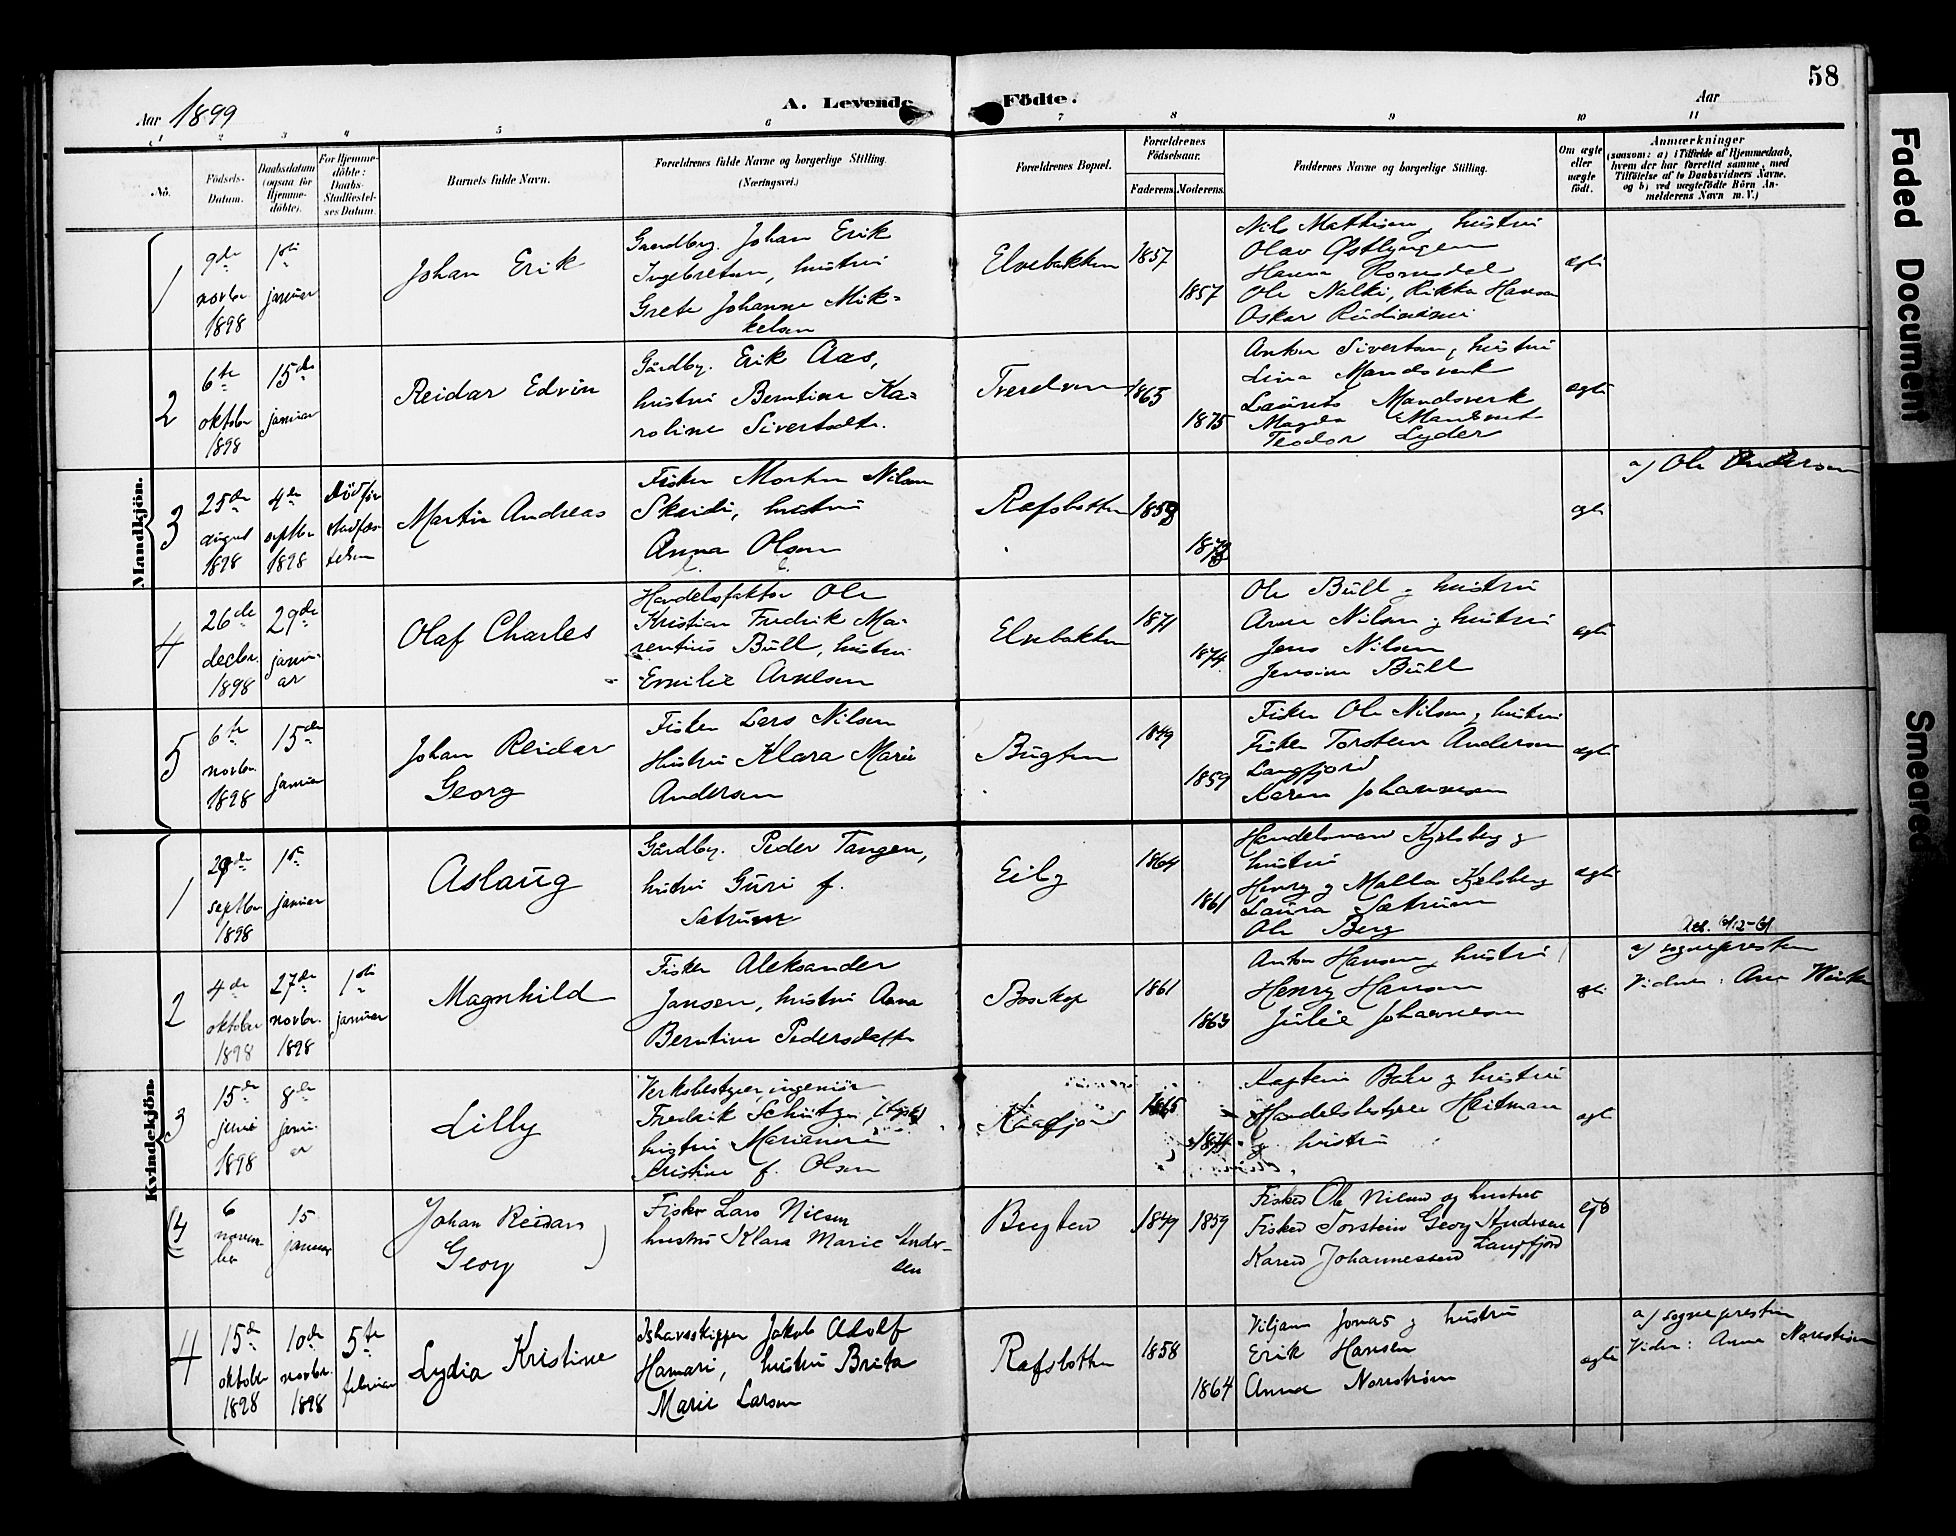 58
Aar 1899
A. Levende Födte.
Aar
1 2 3 4 5 6 7 8 9 10 11
No.
Födsels-
Datum.
Daabsdatum
(ogsaa for
Hjemme-
döbte).
For Hjemme-
döbte:
Daabs-
Stadfæstel-
ses Datum.
Barnets fulde Navn.
Forældrenes fulde Navne og borgerlige Stilling.
(Næringsvei.)
Forældrenes Bopæl.
Forældrenes
Födselsaar.
Faderens.
Moderens.
Faddernes Navne og borgerlige Stilling.
Om ægte
eller
uægte
födt.
Anmærkninger
(saasom: a) i Tilfælde af Hjemmedaab,
hvem der har forrettet samme, med
Tilföielse af to Daabsvidners Navne,
og b) ved uægtefödte Börn An-
melderens Navn m. V.)
Mandkjön.
1
9de
novbr
1898
1ste
januar
Johan Erik
Gaardbrg. Johan Erik
Ingebretsen, hustru
Grete Johanne Mik-
kelsen
Elvebakken
1857
1857
Nils Mathisen, hustru
Olav Østlyngen
Hanna Romsdal
Ole Nalki, Rikka Hansen
Oskar
ægte
2
6te
oktober
1898
15de
januar
Reidar Edvin
Gårdbr. Erik Aas,
hustru Berntine Ka-
roline Sivertsdtr.
Tverelven
1865
1875
Anton Sivertsen, hustru
Lina Mandsverk
Laurits Mandsverk
Magda
Teodor Lyder
ægte
3
25de
august
1898
4de
septbr
1898
Død før
stadfæs-
telsen
Martin Andreas
Fisker Morten Nilsen
Skaidi, hustru
Anna Olsen
Rafsbotten
1858
ægte
a) Ole Andersen
4
26de
decbr.
1898
29de
janu-
ar
Olaf Charles
Handelsfaktor Ole
Kristian Fredrik Ma-
rentius Bull, hustru
Emilie Arnesen
Elvebakken
1871
1874
Ole Bull og hustru
Arne Nilsen og hustru
Jens Nilsen
Jensine Bull
ægte
5
6te
novbr.
1898
15de
januar
Johan Reidar
Georg
Fisker Lars Nilsen
Hustru Klara Marie
Andersen
Bugten
1849
1859
Fisker Ole Nilsen, hustru
Fisker Torstein Andersen
Langfjord
Karen Johannesen
ægte
Kvindekjön.
1
septbr
1898
1ste
januar
Aslaug
Gårdbr. Peder Tangen,
hustru Guri f.
Sætrum
Eiby
1864
1861
Handelsmand Kjelsberg og
hustru
Henry og Malla Kjelsberg
Laura Sætrum
Ole Berg
ægte
2
4de
oktober
1898
27de
novbr.
1898
1ste
januar
Magnhild
Fisker Aleksander
Jansen, hustru Anna
Berntine Pedersdatter
Bosekop
1861
1863
Anton Hansen, hustru
Henry Hansen
Julie Johannesen
ægte
a) sognepresten
Vidner: Ane
3
15de
juni
1898
8de
janu-
ar
Lilly
Verksbestyrer, ingeniør
Fredrik Schutze (tysk)
hustru Marianne
Kristine f. Olsen
Kaafjord
1865
1874
Kaptein Bahr og hustru
Handelsbestyrer Heitman
og hustru
ægte
(4
6
novem-
ber
15
januar
Johan Reidar
Georg )
Fisker Lars Nilsen
hustru Klara Marie Ander-
sen
Bugten
1849
1859
Fisker Ole Nilsen og hustru
Fisker Torstein Georg Andersen
Langfjord
Karen Johannessen
egte
4
15de
oktober
1898
10de
novbr.
1898
5te
februar
Lydia Kristine
Ishavsskipper Jakob Adolf
Hamari, hustru Brita
Marie Larsen
Rafsbotten
1858
1864
Viljam Jonas og hustru
Erik Hansen
Anna Norrstrøm
ægte
a) sognepresten
Vidner: Anna Norrstrøm
Faded Document
Smeared